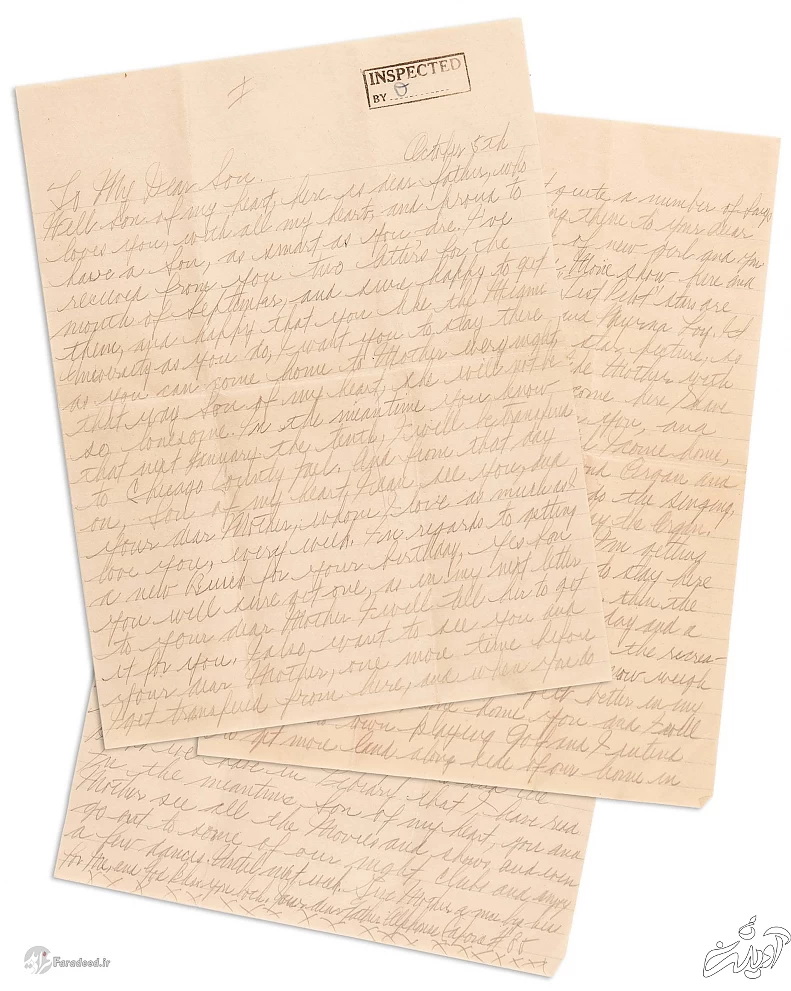 INSPECTED
BY O
I
October 5th
To My Dear Son.
Well Son of my heart, here is dear father, who
loves you, with all my heart, and proud to
have a Son, as smart as you are. I've
received from you two letters for the
month of September, and sure happy to get
them, and happy that you like the Miami
University as you do, I want you to stay there
as you can come home to Mother every night
that way Son of my heart, she will not be
so lonesome. In the meantime you know
that next January the tenth, I will be transferd
to Chicago County Jail. And from that day
on, Son of my heart, I can see you, and
your dear Mother, whom I love as much as I
love you, every week. In regards to getting
a new Buick for your birthday, Yes Son
you will sure get one, as in my next letter
to your dear Mother I will tell her to get
it for you. I also, want to see you and
your dear Mother, one more time before
I get transferd from here, and when you do
quite a number of songs
them to your dear
of new girl and you
Movie show here and
stars are
and Myrna Loy. It
star picture. So
the Mother with
come here, I have
you, and
I come home,
and Organ and
do the singing,
the Organ.
I'm getting
to stay here
then the
day and a
the recrea-
now weigh
better in my
home you and I will
town playing Golf and I intend
get more land along side of our home in
we have in Library that I have read
In the meantime, Son of my heart, you and
Mother see all the Movies and shows, and even
go out to some of our night clubs and enjoy
a few dances. Until next week. Give Mother a nice big kiss
for me, and God bless you both, your dear father Alphonse Capone # 85
XXXXXXXXXXXXXXXX
Faradeed.ir